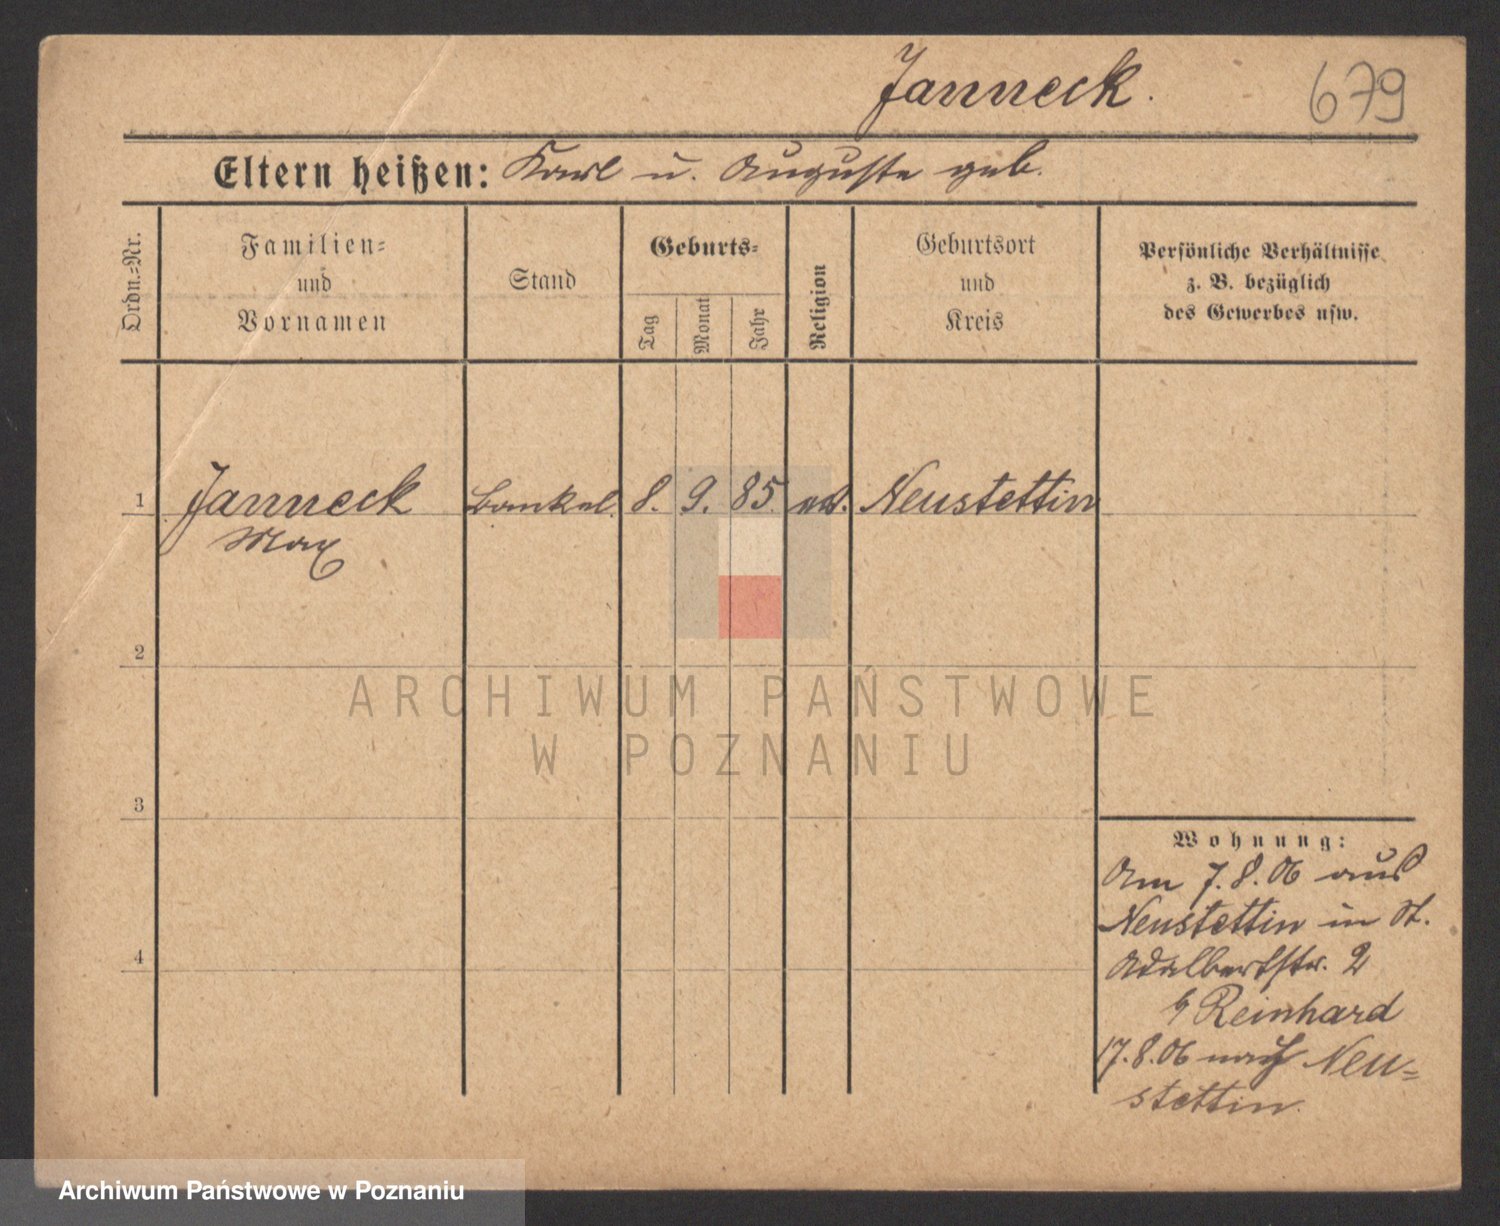 Janneck.
679
Eltern heißen: Karl u. Auguste geb.
Ordn.=Nr.
Familien=
und
Vornamen
Stand
Geburts=
Tag
Monat
Jahr
Religion
Geburtsort
und
Kreis
Persönliche Verhältnisse
z. B. bezüglich
des Gewerbes usw.
1 Janneck 8. 9. 85. Neustettin
Max
2
3
4
Wohnung:
Am 7.8.06 aus
Neustettin in St.
Adalbertstr. 2
Reinhard
17.8.06 nach Neu=
stettin.
ARCHIWUM PAŃSTWOWE
W POZNANIU
Archiwum Państwowe w Poznaniu